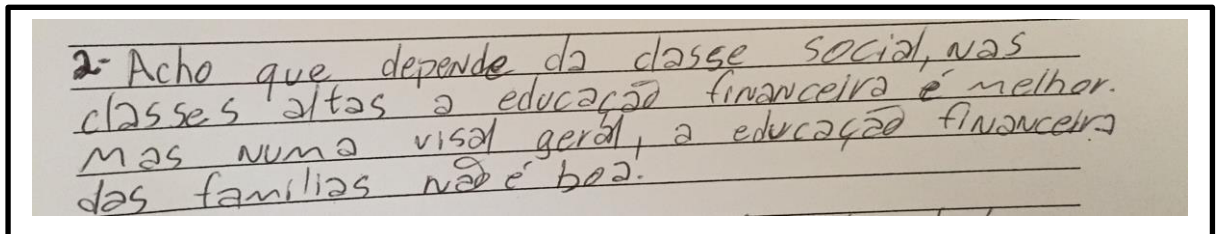 2- Acho que depende da classe social, nas
classes altas a educação financeira é melhor.
Mas numa visal geral, a educação financeira
das famílias não é boa.